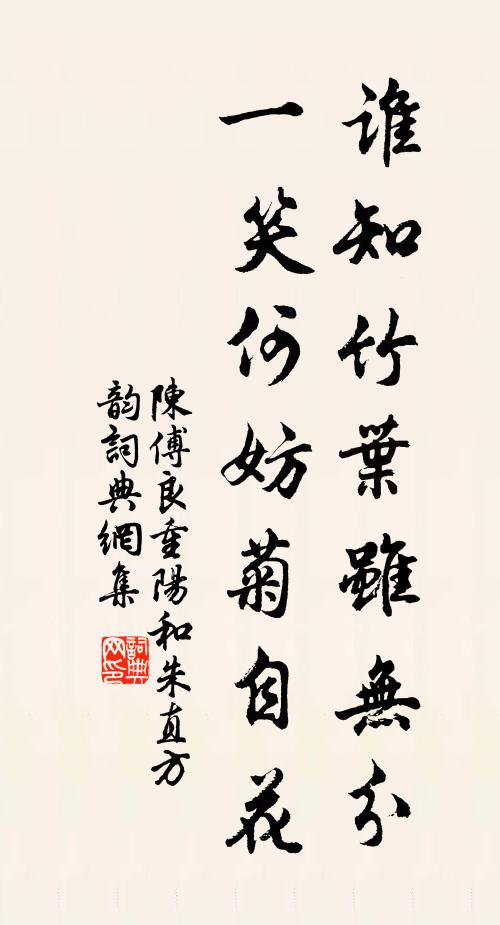 誰知竹葉雖無分
一笑何妨菊自花
陳傅良重陽和朱直方
韵詞典網集
詞典网印